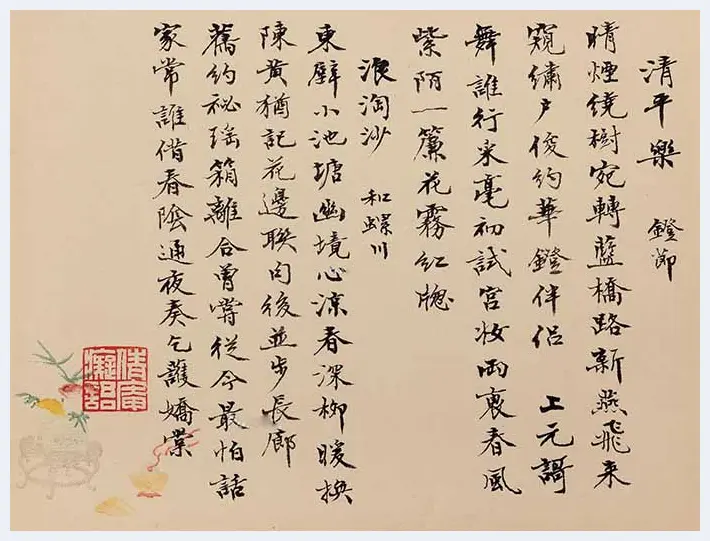 清平樂 鐙節
晴煙繞樹宛轉藍橋路新燕飛来
窺繡戶俊約華鐙伴侶 上元謌
舞誰行采毫初試宮妝兩褎春風
紫陌一簾花霧紅牕
浪淘沙 和蝶川
東壁小池塘幽境心涼春深柳暖換
陳黃猶記花邊聯句後並步長廊
舊約祕瑤箱離合曾嘗從今最怕話
家常誰借春陰通夜奏乞護嬌棠